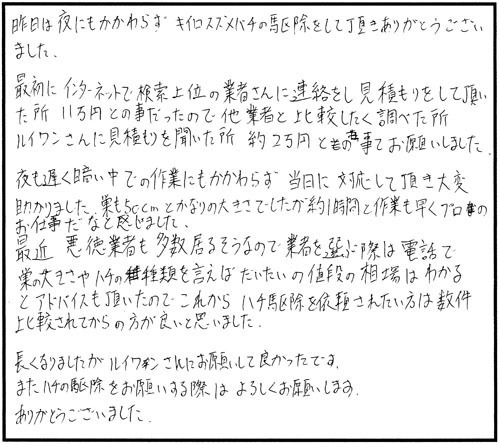 昨日は夜にもかかわらず キイロスズメバチの駆除をして頂きありがとうござい
ました。
最初に インターネットで検索上位の業者さんに連絡をし見積もりをして頂い
た所 11万円との事だったので他業者と比較したく調べた所
ルイワンさんに見積もりを聞いた所 約2万円との事でお願いしました。
夜も遅く暗い中での作業にもかかわらず 当日に対応して頂き大変
助かりました。巣も50cmとかなりの大きさでしたが約1時間と作業も早くプロの
お仕事だなと感じました。
最近 悪徳業者も多数居るそうなので業者を選ぶ際は電話で
巣の大きさやハチの種類を言えばだいたいの値段の相場はわかる
とアドバイスも頂いたので これから ハチ駆除を依頼されたい方は数件
比較されてからの方が良いと思いました。
長くなりましたが ルイワンさんにお願いして良かったです。
またハチの駆除をお願いする際は よろしくお願いします。
ありがとうございました。